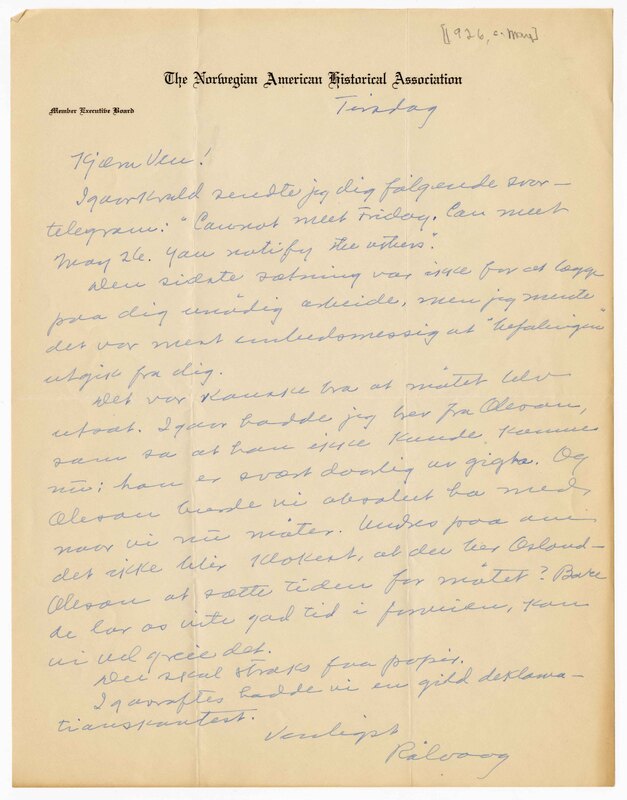 [1926, c. May]
The Norwegian American Historical Association
Member Executive Board
Tirsdag
Kjære Ven!
Igaarkvæld sendte jeg dig følgende svar-
telegram: "Cannot meet Friday. Can meet
May 26. You notify the others".
Den sidste sætning var ikke for at lægge
paa dig unødig arbeide, men jeg mente
det var mest embedsmessig at "befalingen"
utgik fra dig.
Det var kanske bra at møtet blev
utsat. Igaar hadde jeg brev fra Oleson,
som sa at han ikke kunde komme
nu; han er svært daarlig av gigta. Og
Oleson burde vi absolut ha med
naar vi nu møter. Undres paa om
det ikke blir klokest, at du ber Osland-
Oleson at sætte tiden for møtet? Bare
de lar os vite god tid i forveien, kan
vi vel greie det.
Dei skal straks faa papir.
Igaaraftes hadde vi en gild deklama-
tionskontest.
Venligst
Rølvaag